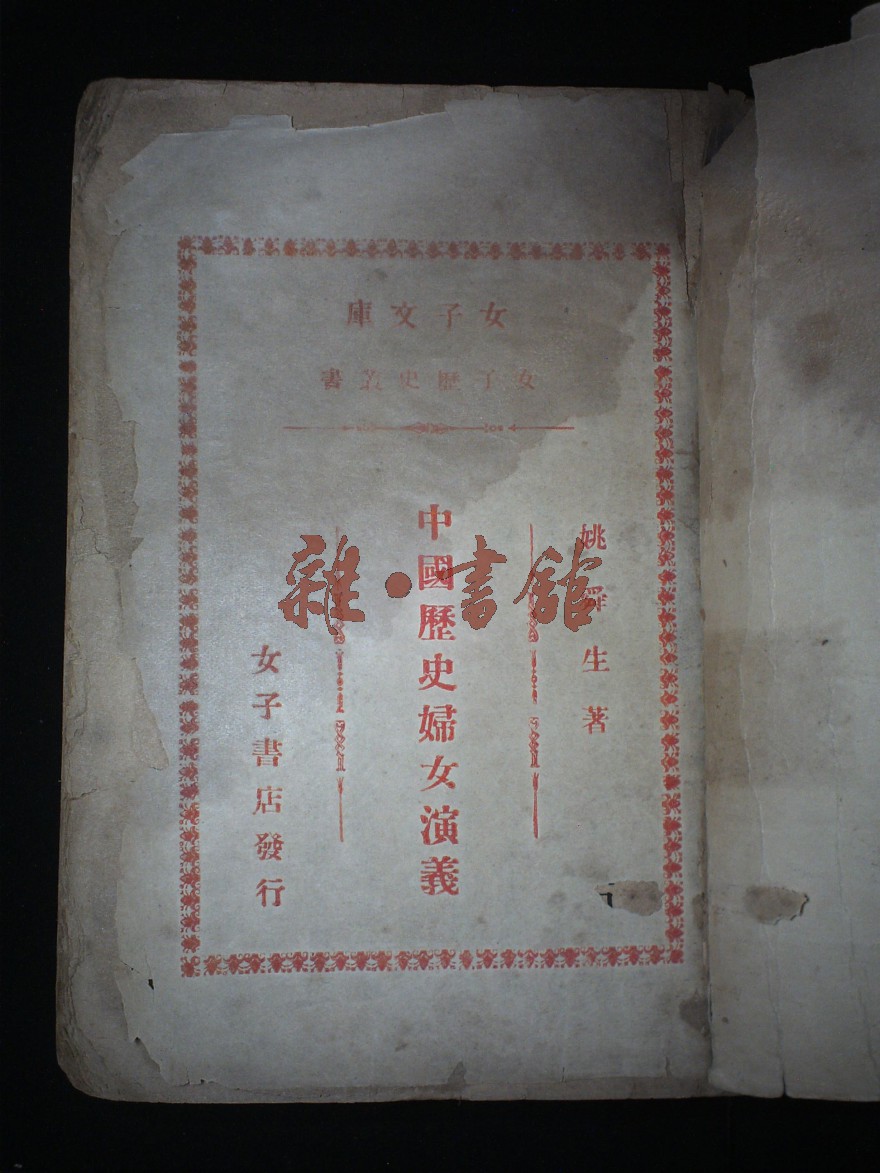 女子文庫
女子歷史叢書
姚舜生著
中國歷史婦女演義
女子書店發行
雜·書館